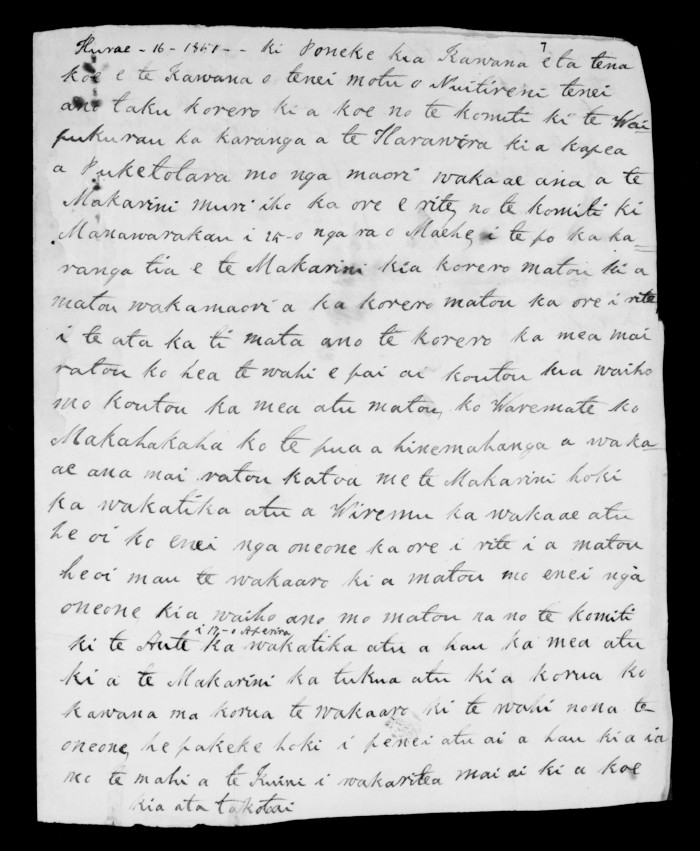 Hurae - 16 - 1851 - - ki Poneke kia Kawana e ta tena
7
koe e te Kawana o tenei motu o Nuitireni tenei
ano taku korero ki a koe no te komiti ki te Wai-
pukurau ka karanga a te Harawira ki a kapea
a Puketotara mo nga maori wakaae ana a te
Makarini muri iho ka ore e rite, no te komiti ki
Manawarakau i 25-o nga ra o Maehe, i te po ka ka-
ranga tia e te Makarini kia korero matou ki a
matou wakamaori a ka korero matou ka ore i rite
i te ata ka ti mata ano te korero ka mea mai
ratou ko hea te wahi e pai ai koutou kia waiho
mo koutou ka mea atu matou, ko Waremate ko
Makahakaha ko te pua a hinemahanga a waka-
ae ana mai ratou katoa me te Makarini hoki
ka wakatika atu a Wiremu ka wakaae atu
he oi ko enei nga oneone ka ore i rite i a matou
heoi mau te wakaaro ki a matou mo enei nga
oneone kia waiho ano mo matou na no te komiti
i 17-o Aperira
ki te Aute ka wakatika atu a hau ka mea atu
ki a te Makarini ka tukua atu ki a korua ko
kawana ma korua te wakaaro ki te wahi nona te
oneone, he pakeke hoki i penei atu ai a hau kia ia
mo te mahi a te Kuini i wakaritea mai ai ki a koe
kia ata takotoai